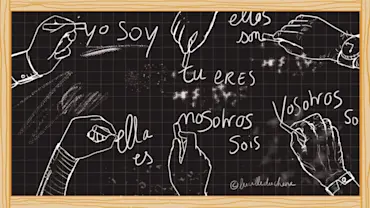 yo soy
ellos
son
tu eres
ella
es
nosotros
sois
Vosotros
so